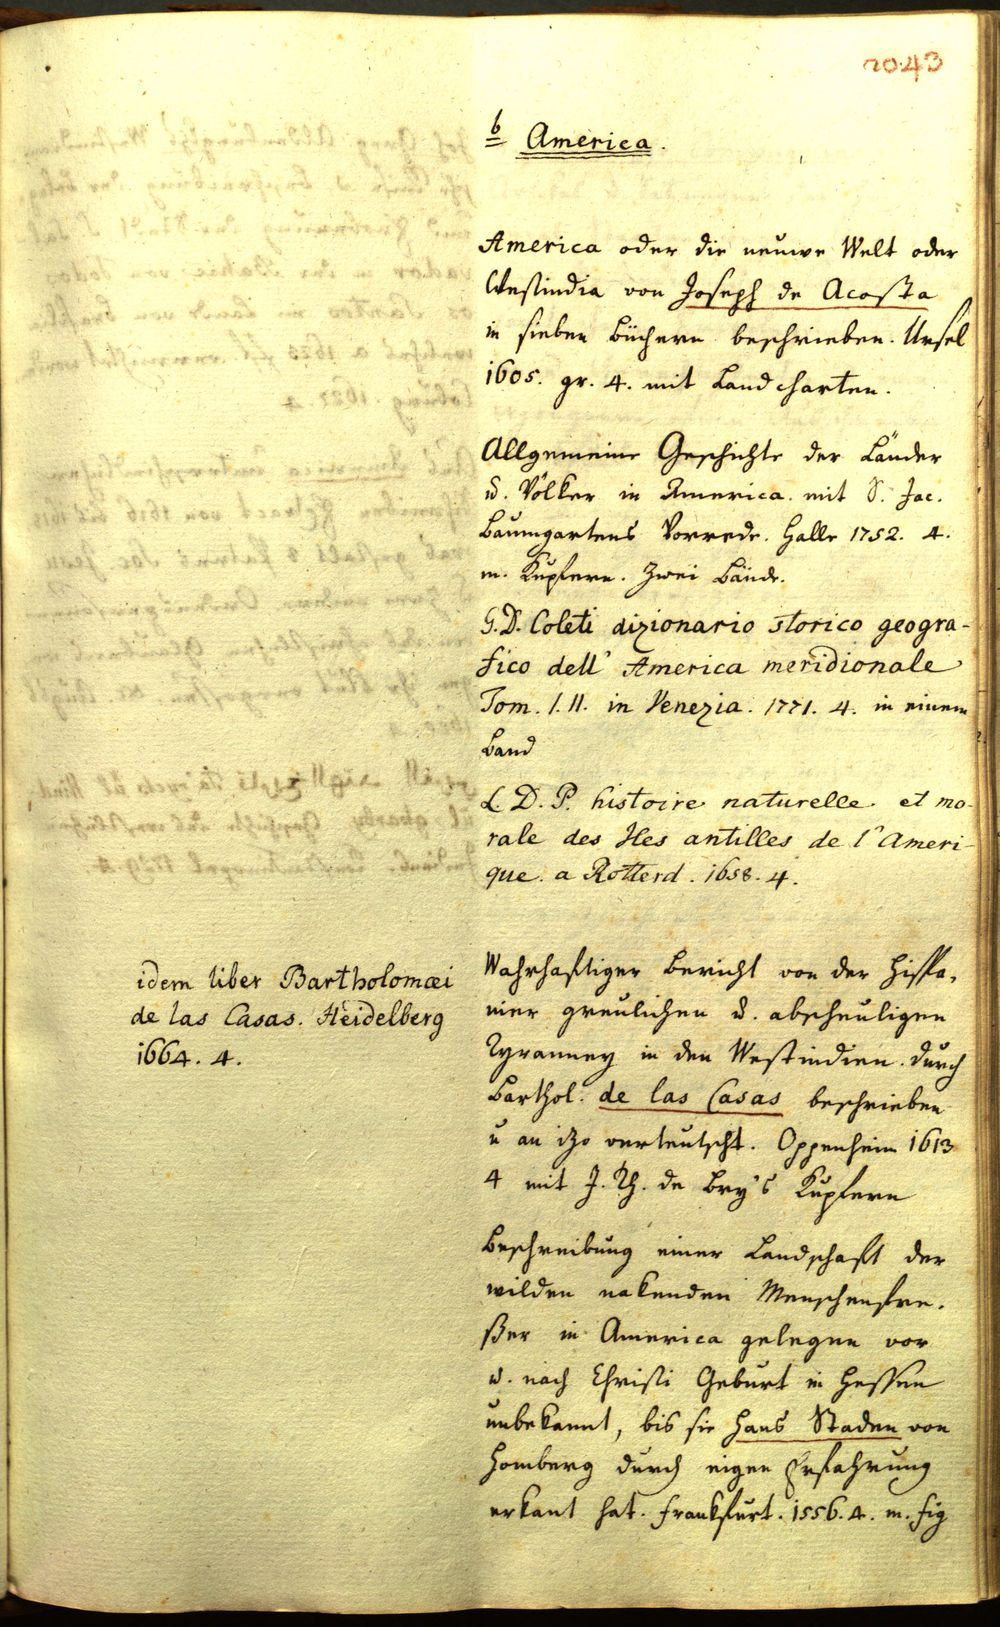 2043
b America.
America oder die neuwe Welt oder
Westindia von Joseph de Acosta
in sieben Büchern beschrieben. Ursel
1605. gr. 4. mit Landcharten.
Allgemeine Geschichte der Länder
u. Völker in America mit S. Jac.
Baumgartens Vorrede. Halle 1752. 4.
m. Kupfern. Zwei Bände.
G. D. Coleti dizionario storico geogra-
fico dell' America meridionale
Tom. I. II. in Venezia. 1771. 4. in einem
Band
L. D. P. histoire naturelle et mo-
rale des Iles antilles de l'Ameri-
que. a Rotterd. 1658. 4.
idem liber Bartholomæi
de las Casas. Heidelberg
1664. 4.
Wahrhafftiger Bericht von der Hispa-
nier greulichen u. abscheuligen
Tyranney in den Westindien. durch
Barthol. de las Casas beschrieben
u an itzo verteutscht. Oppenheim 1613
4 mit J. Th. de Bry's Kupfern
Beschreibung einer Landschafft der
wilden nakenden Menschenfre-
ßer in America gelegen vor
u. nach Christi Geburt in Hessen
unbekannt, bis sie Hans Staden von
Homberg durch eigen Erfahrung
erkant hat. Frankfurt. 1556. 4. m. fig